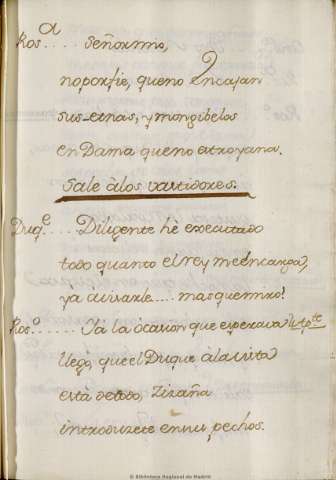 Ros.ª .... Señor mio,
no porfie, que no Encajan
sus etnas, y mongibelos
en Dama que no es troyana.
Sale à los vastidores.
Duq.e .... Diligente hé executado
todo quanto el rey me Encarga,
ya avisarle .... mas que miro!
Ros.º .... Ya la òcasion que esperava
llegò, que el Duque à la vista
està de todo, Zizaña
introduzcàse en sus pechos.
© Biblioteca Regional de Madrid